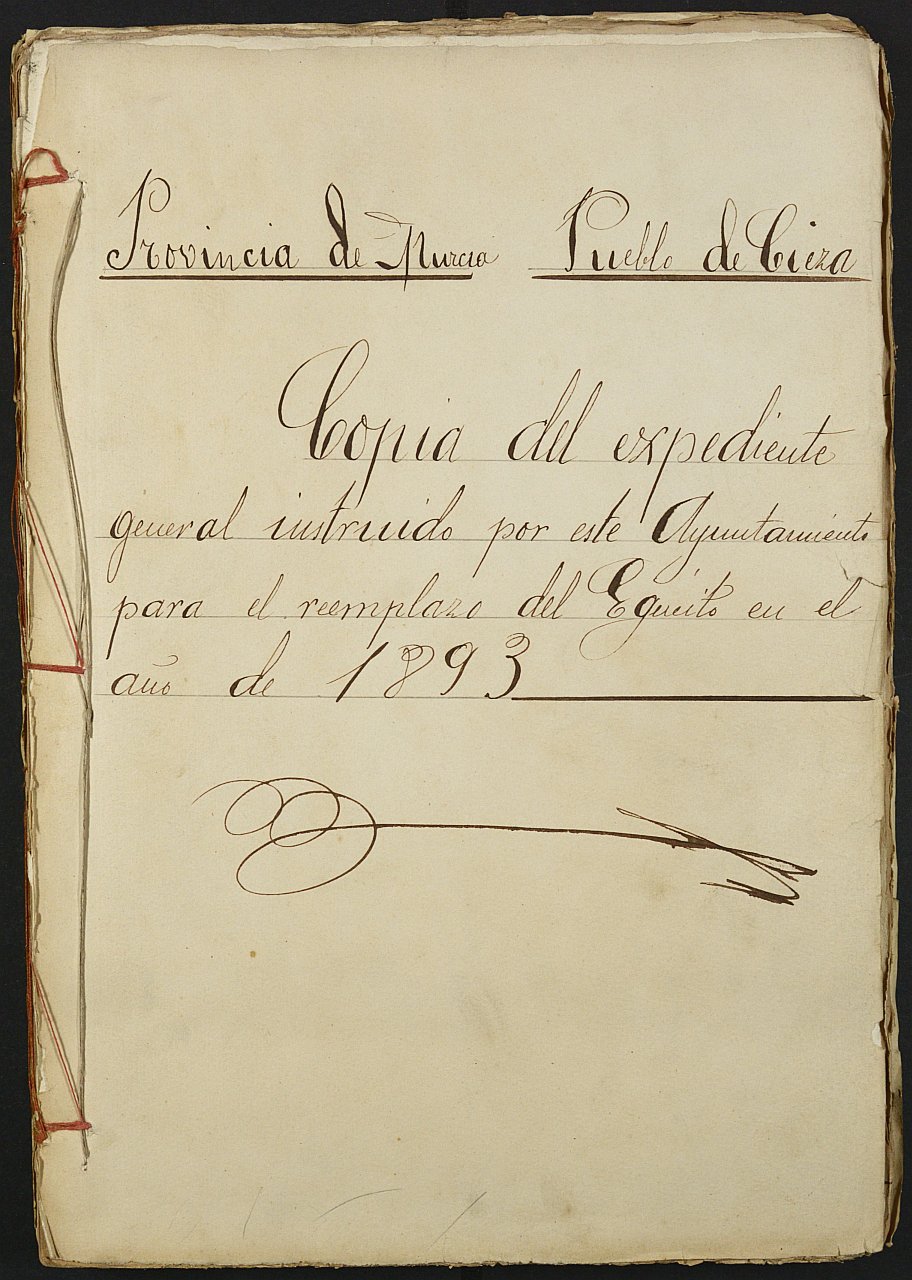 Provincia de Murcia Pueblo de Cieza
Copia del expediente
general instruido por este Ayuntamiento
para el reemplazo del Egercito en el
año de 1893